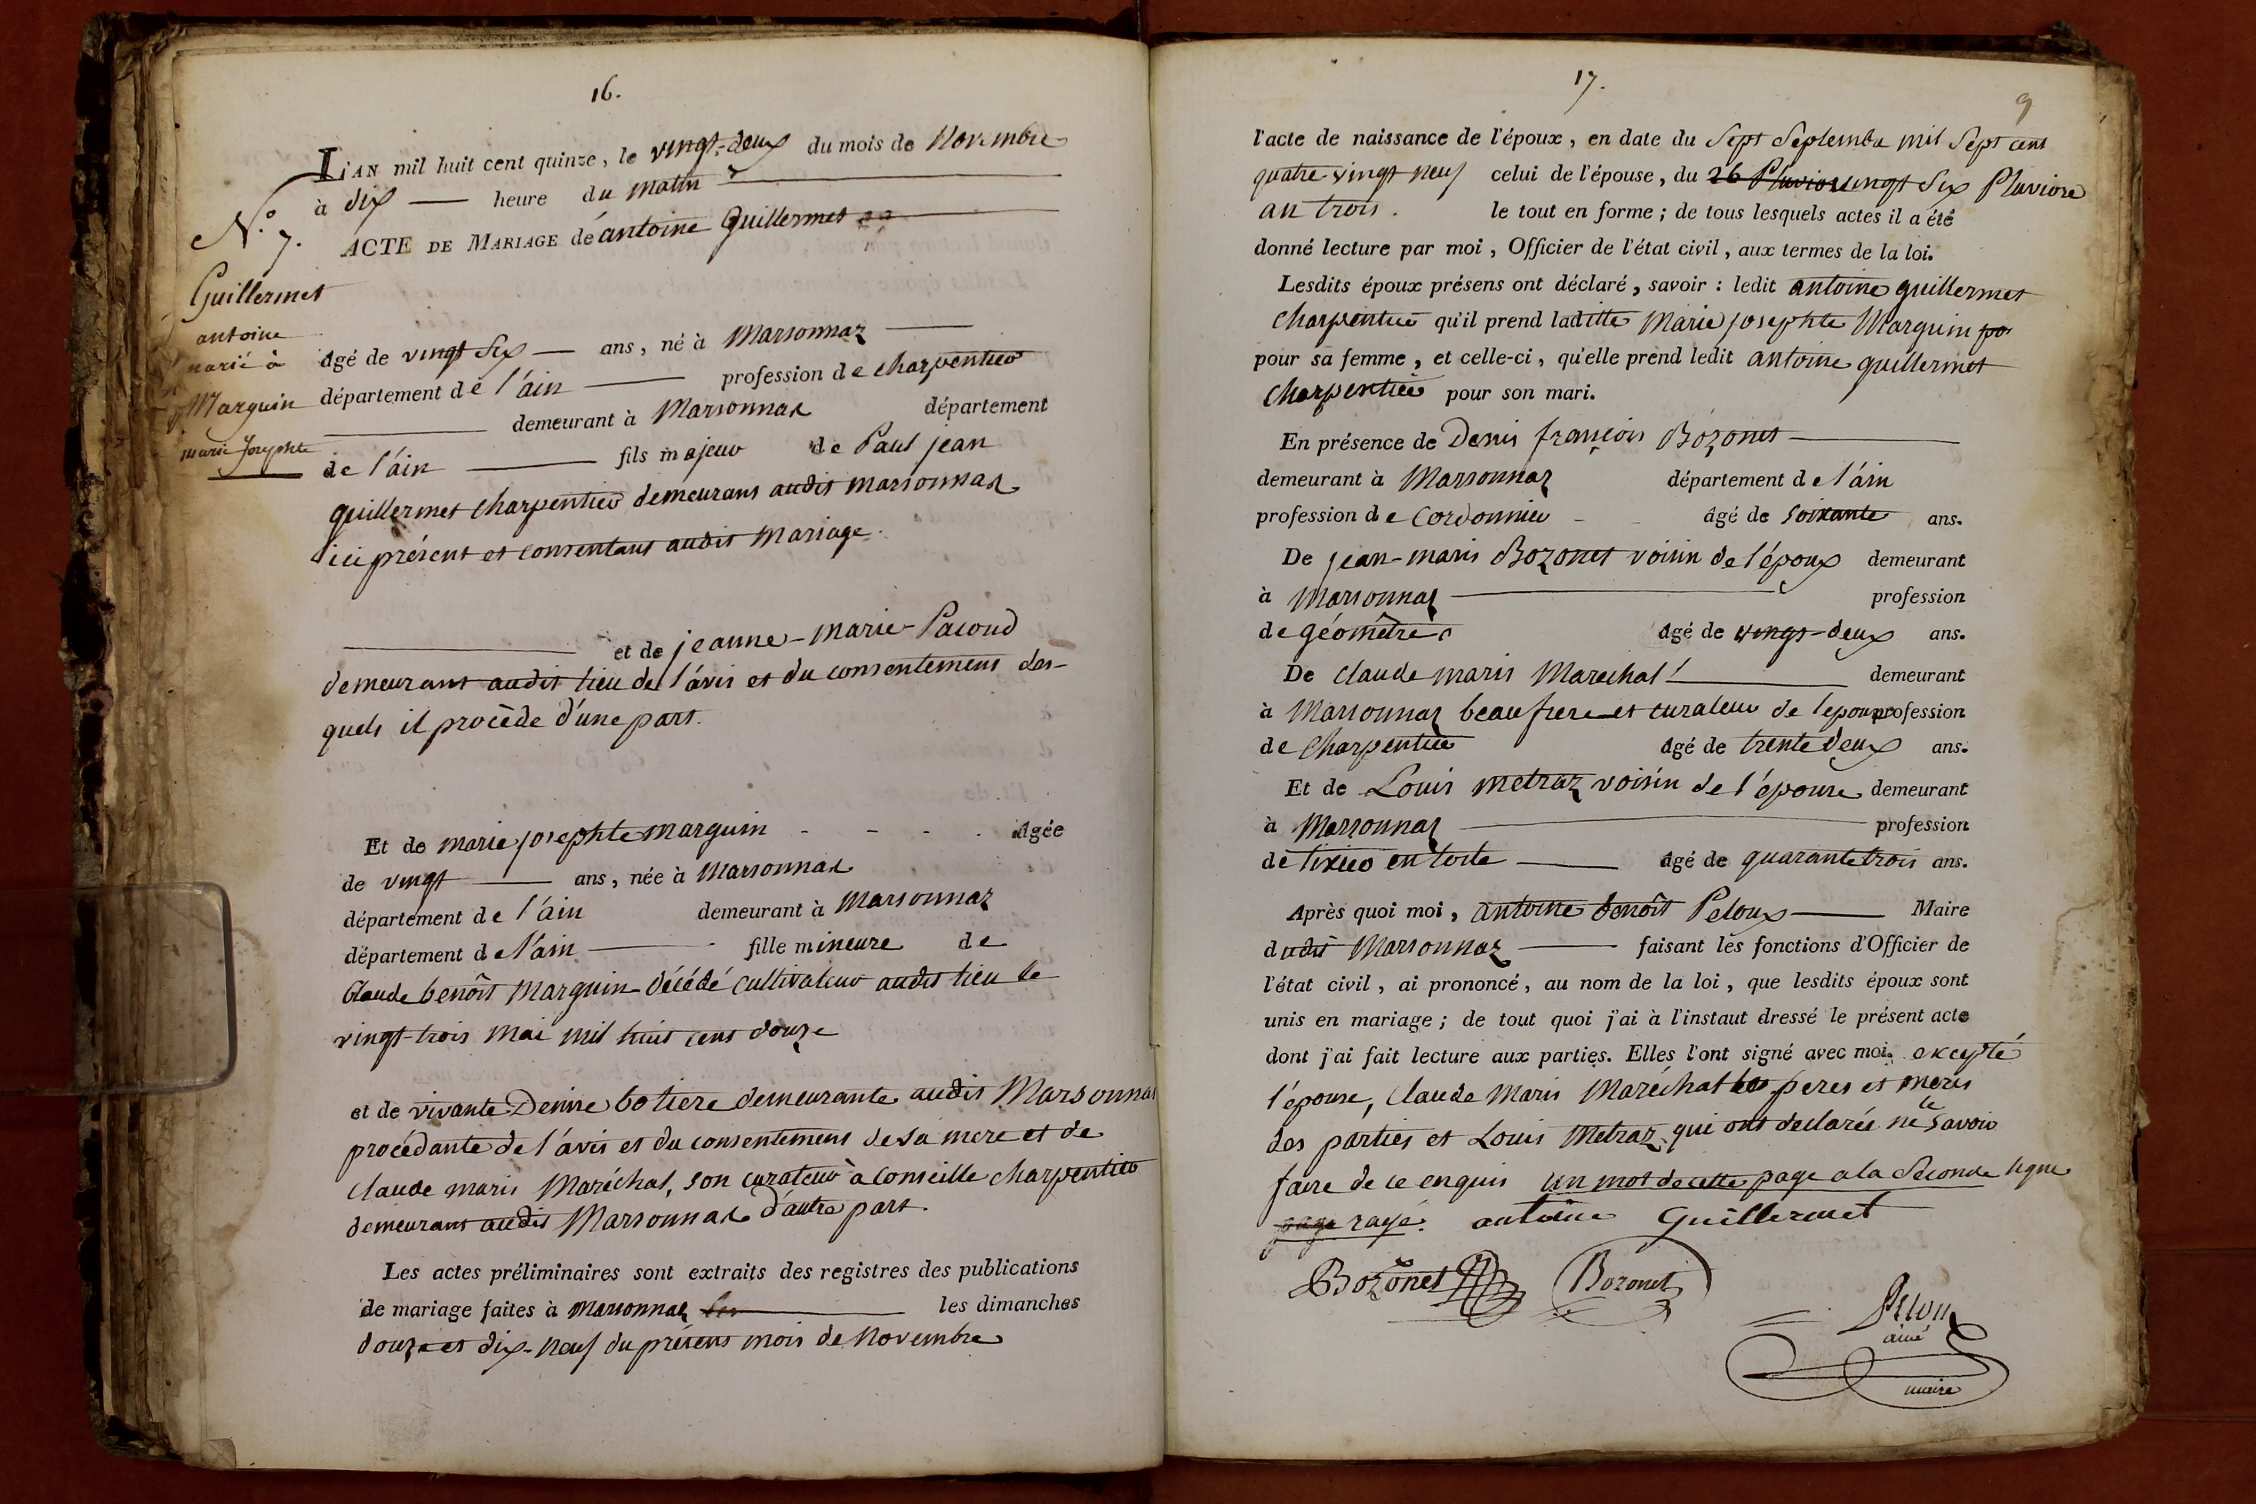 16.
L'AN mil huit cent quinze, le vingt-deux du mois de Novembre
à dix heure du matin
N.° 7.
ACTE DE MARIAGE de antoine Guillermet
Guillermet
antoine
marié à
Marguin
marie Josephte
âgé de vingt Six ans, né à Marsonnaz
département de l'ain profession de charpentier
demeurant à Marsonnaz département
de l'ain fils majeur de Paul jean
guillermet charpentier demeurant audit marsonnaz
ici présent et consentant audit mariage.
et de jeanne-marie-Pacoud
demeurant audit lieu de l'avis et du consentement des-
quels il procède d'une part.
Et de marie josephte marguin - - - . âgée
de vingt ans, née à Marsonnaz
département de l'ain demeurant à Marsonnaz
département de l'ain fille mineure de
Claude benoît Marguin décédé cultivateur audit lieu le
vingt-trois Mai mil huit cent douze
et de vivante Denise botiere demeurante audit Marsonnaz
procédante de l'avis et du consentement de sa mere et de
claude maris Maréchal, son curateur à Conseille charpentier
demeurant audit Marsonnaz d'autre part.
Les actes préliminaires sont extraits des registres des publications
de mariage faites à marsonnaz les dimanches
douze et dix-neuf du présent mois de Novembre
17.
9
l'acte de naissance de l'époux, en date du Sept Septembre mil Sept cent
quatre vingt neuf celui de l'épouse, du 26 Pluviose vingt Six Pluviose
an trois. le tout en forme ; de tous lesquels actes il a été
donné lecture par moi, Officier de l'état civil, aux termes de la loi.
Lesdits époux présens ont déclaré, savoir : ledit antoine guillermet
charpentier qu'il prend laditte Marie josephte Marguin po
pour sa femme, et celle-ci, qu'elle prend ledit antoine guillermet
charpentier pour son mari.
En présence de Denis françois Bozonet
demeurant à Marsonnaz département de l'ain
profession de Cordonnier - - âgé de soixante ans.
De jean-maris Bozonet voisin de l'époux demeurant
à Marsonnaz profession
de géomètre âgé de vingt-deux ans.
De claude maris Marechal demeurant
à Marsonnaz beaufrere et curateur de l'epouse profession
de charpentier âgé de trente deux ans.
Et de Louis metraz voisin de l'épouse demeurant
à Marsonnaz profession
de tixier en toile âgé de quarante trois ans.
Après quoi moi, antoine benoît Peloux Maire
dudit Marsonnaz faisant les fonctions d'Officier de
l'état civil, ai prononcé, au nom de la loi, que lesdits époux sont
unis en mariage ; de tout quoi j'ai à l'instaut dressé le présent acte
dont j'ai fait lecture aux parties. Elles l'ont signé avec moi. excepté
l'épouse, claude Maris Maréchal peres et meres
des parties et Louis Metraz qui ont declarés ne le savoir
faire de ce enquis un mot de cette page a la Seconde ligne
page rayé. antoine Guillermet
Bozonet Bozonet
Peloux
ainé
maire